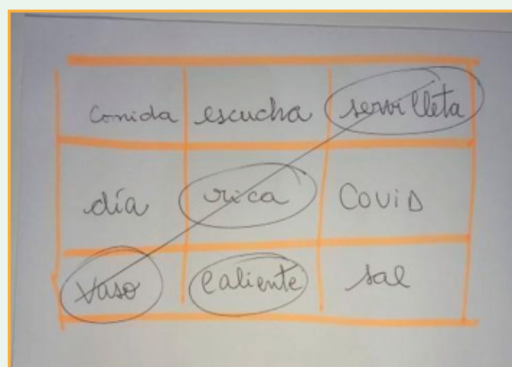 comida escucha servilleta
día rica COVID
vaso caliente sal